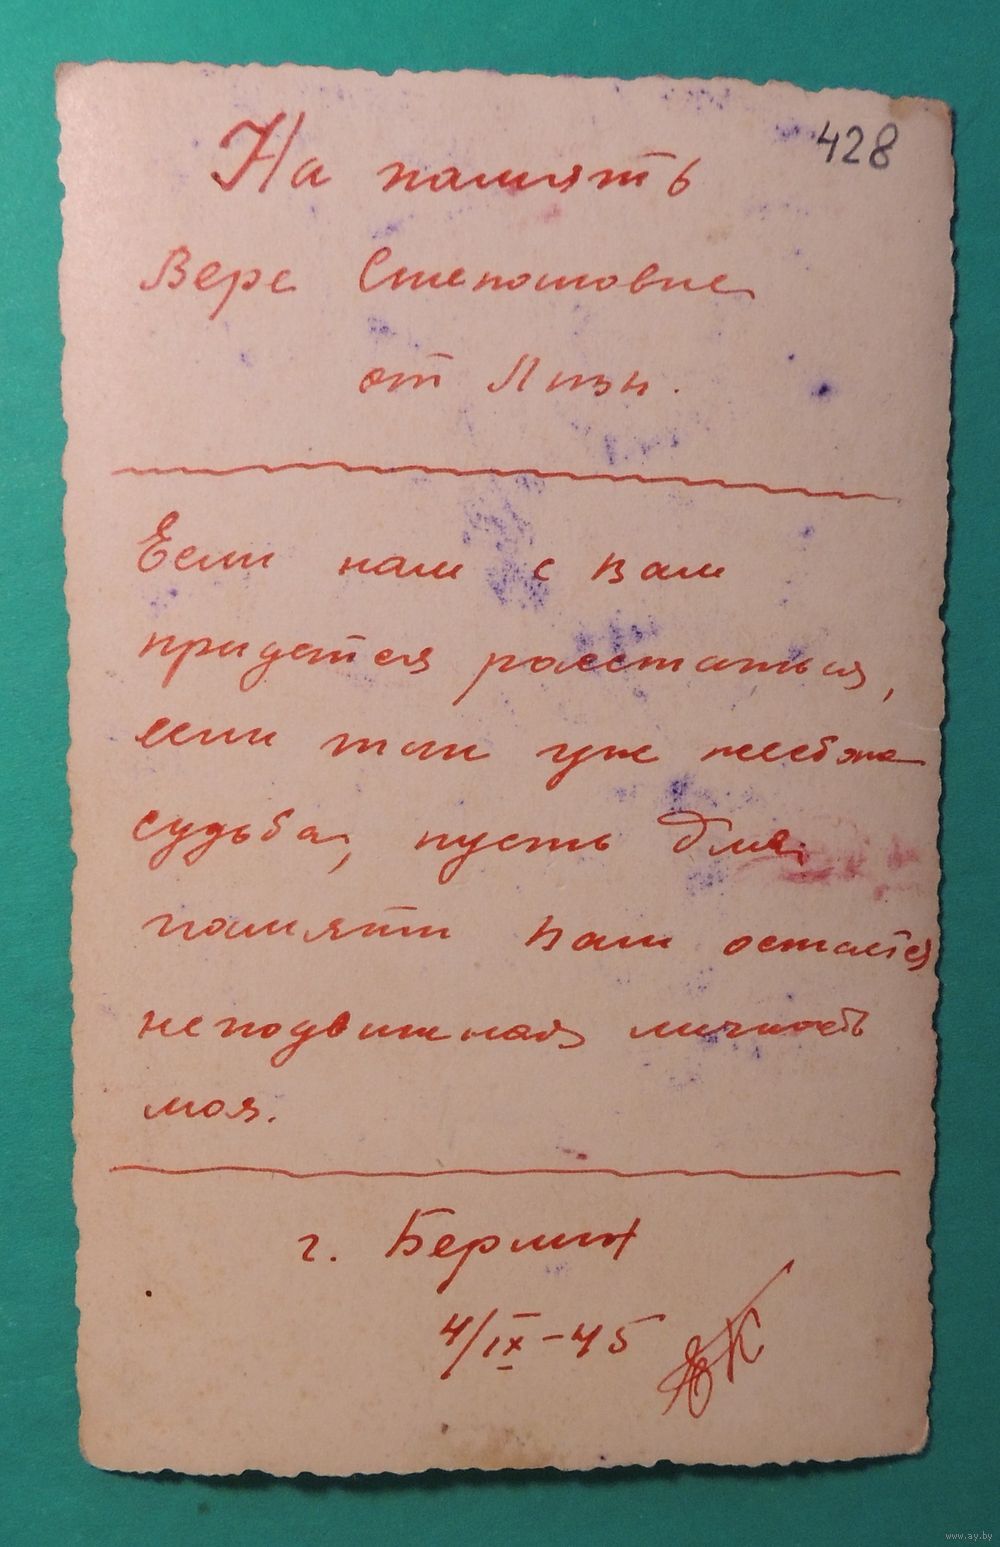 428
На память
Вере Степановне
от Лизы.
Если нам с вам
придется расстаться,
если так уж
судьба, пусть для
памяти Вам остается
неподвижная личность
моя.
г. Берлин
4/IX-45
www.ay.by